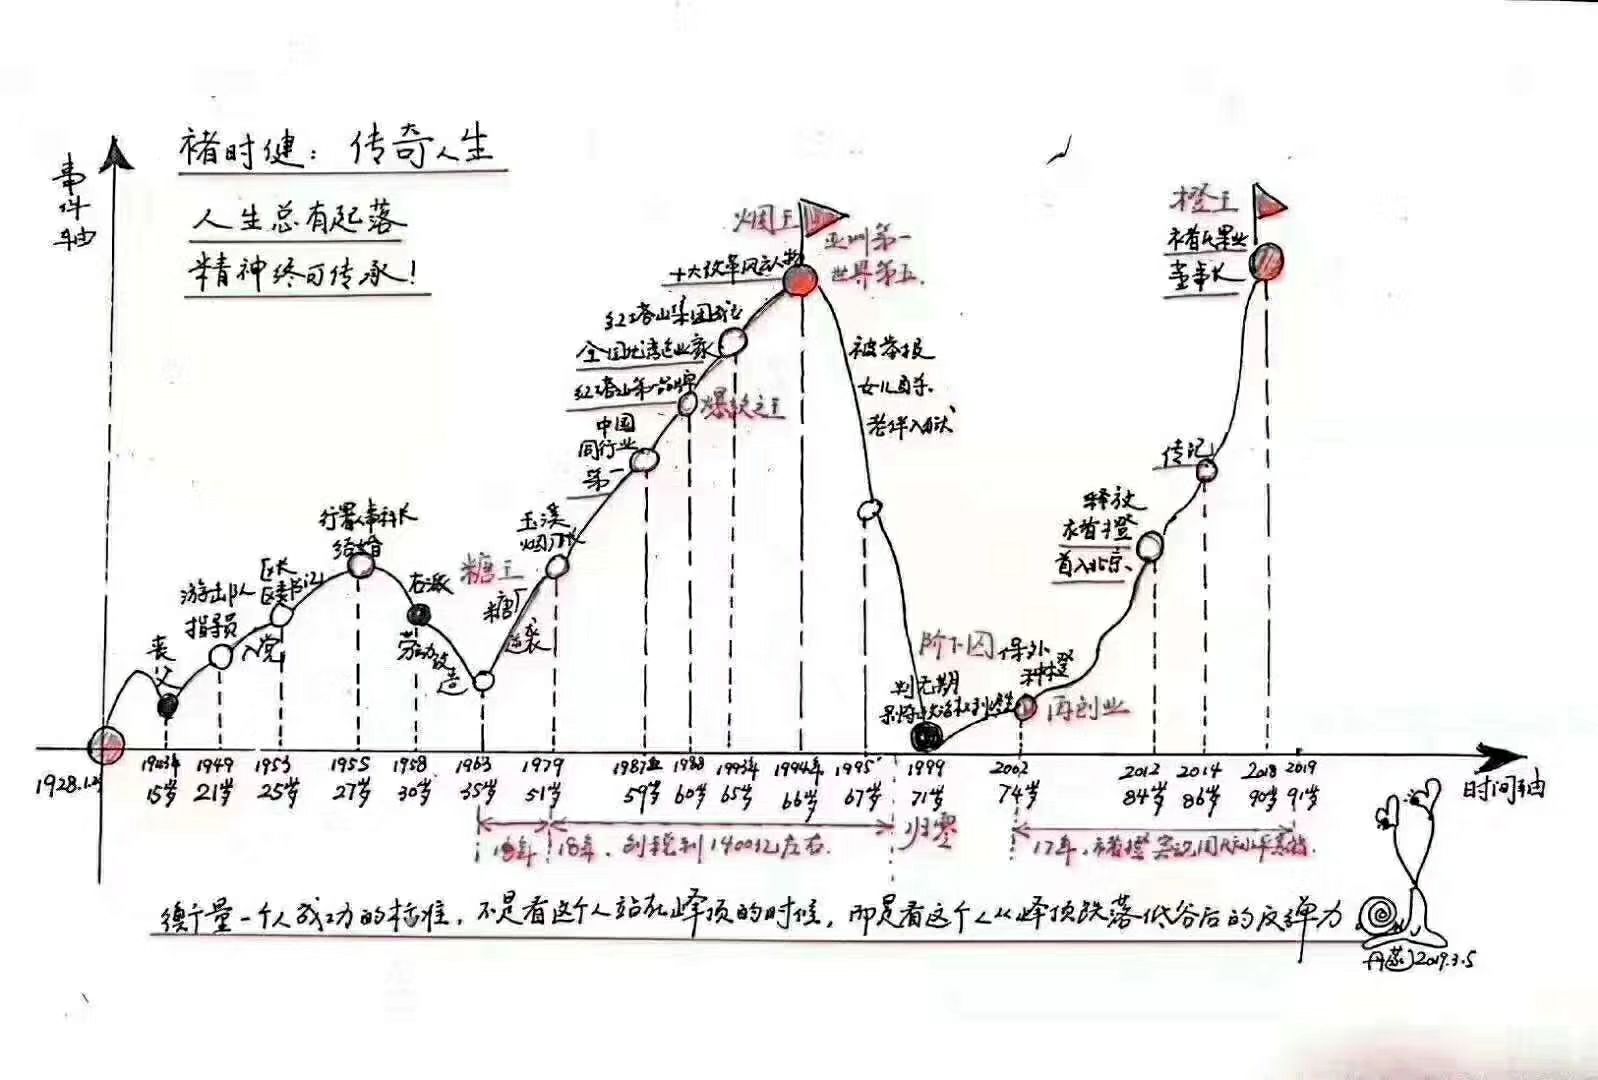 褚时健：传奇人生
人生总有起落
精神终可传承！
事件轴
丧父
游击队
指导员
入党
区长
区委书记
行署人事科长
结婚
右派
劳动改造
糖王
糖厂
逆袭
玉溪
烟厂长
中国
同行业
第一
红塔山第一品牌
爆款之王
红塔山集团成立
全国优秀企业家
十大改革风云人物
烟王
亚洲第一
世界第五
被举报
女儿自杀
老伴入狱
阶下囚
判无期
剥夺政治权利终身
保外
种橙
再创业
释放
褚橙
首入北京
传记
橙王
褚氏果业
董事长
1928.1.
1943年 1949 1953 1955 1958 1963 1979 1987 1988 1993年 1994年 1995 1999 2002 2012 2014 2018 2019
15岁 21岁 25岁 27岁 30岁 35岁 51岁 59岁 60岁 65岁 66岁 67岁 71岁 74岁 84岁 86岁 90岁 91岁
时间轴
18年，创税利1400亿左右.
归零
17年，褚橙
衡量一个人成功的标准，不是看这个人站在峰顶的时候，而是看这个人从峰顶跌落低谷后的反弹力
2019.3.5